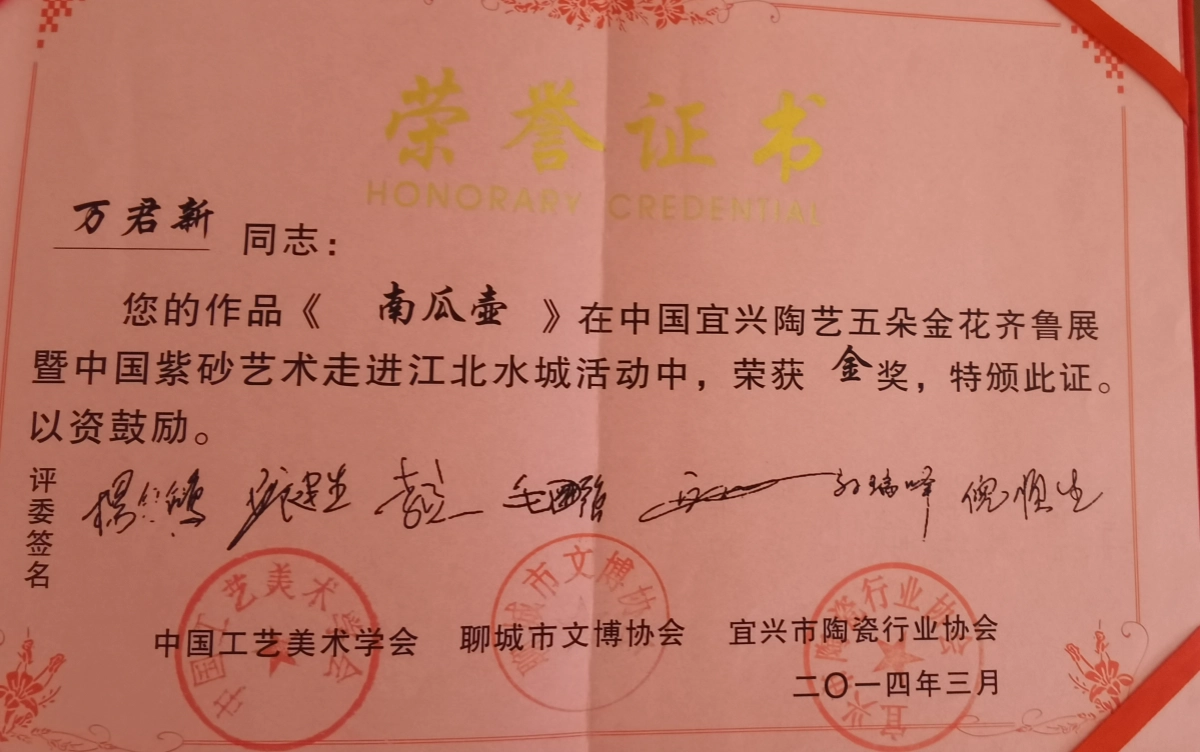 荣誉证书
HONORARY CREDENTIAL
万君新 同志：
您的作品《 南瓜壶 》在中国宜兴陶艺五朵金花齐鲁展
暨中国紫砂艺术走进江北水城活动中，荣获 金奖，特颁此证。
以资鼓励。
评委签名
毛国强
倪顺生
中国工艺美术学会
聊城市文博协会
宜兴市陶瓷行业协会
中国工艺美术学会 聊城市文博协会 宜兴市陶瓷行业协会
二〇一四年三月